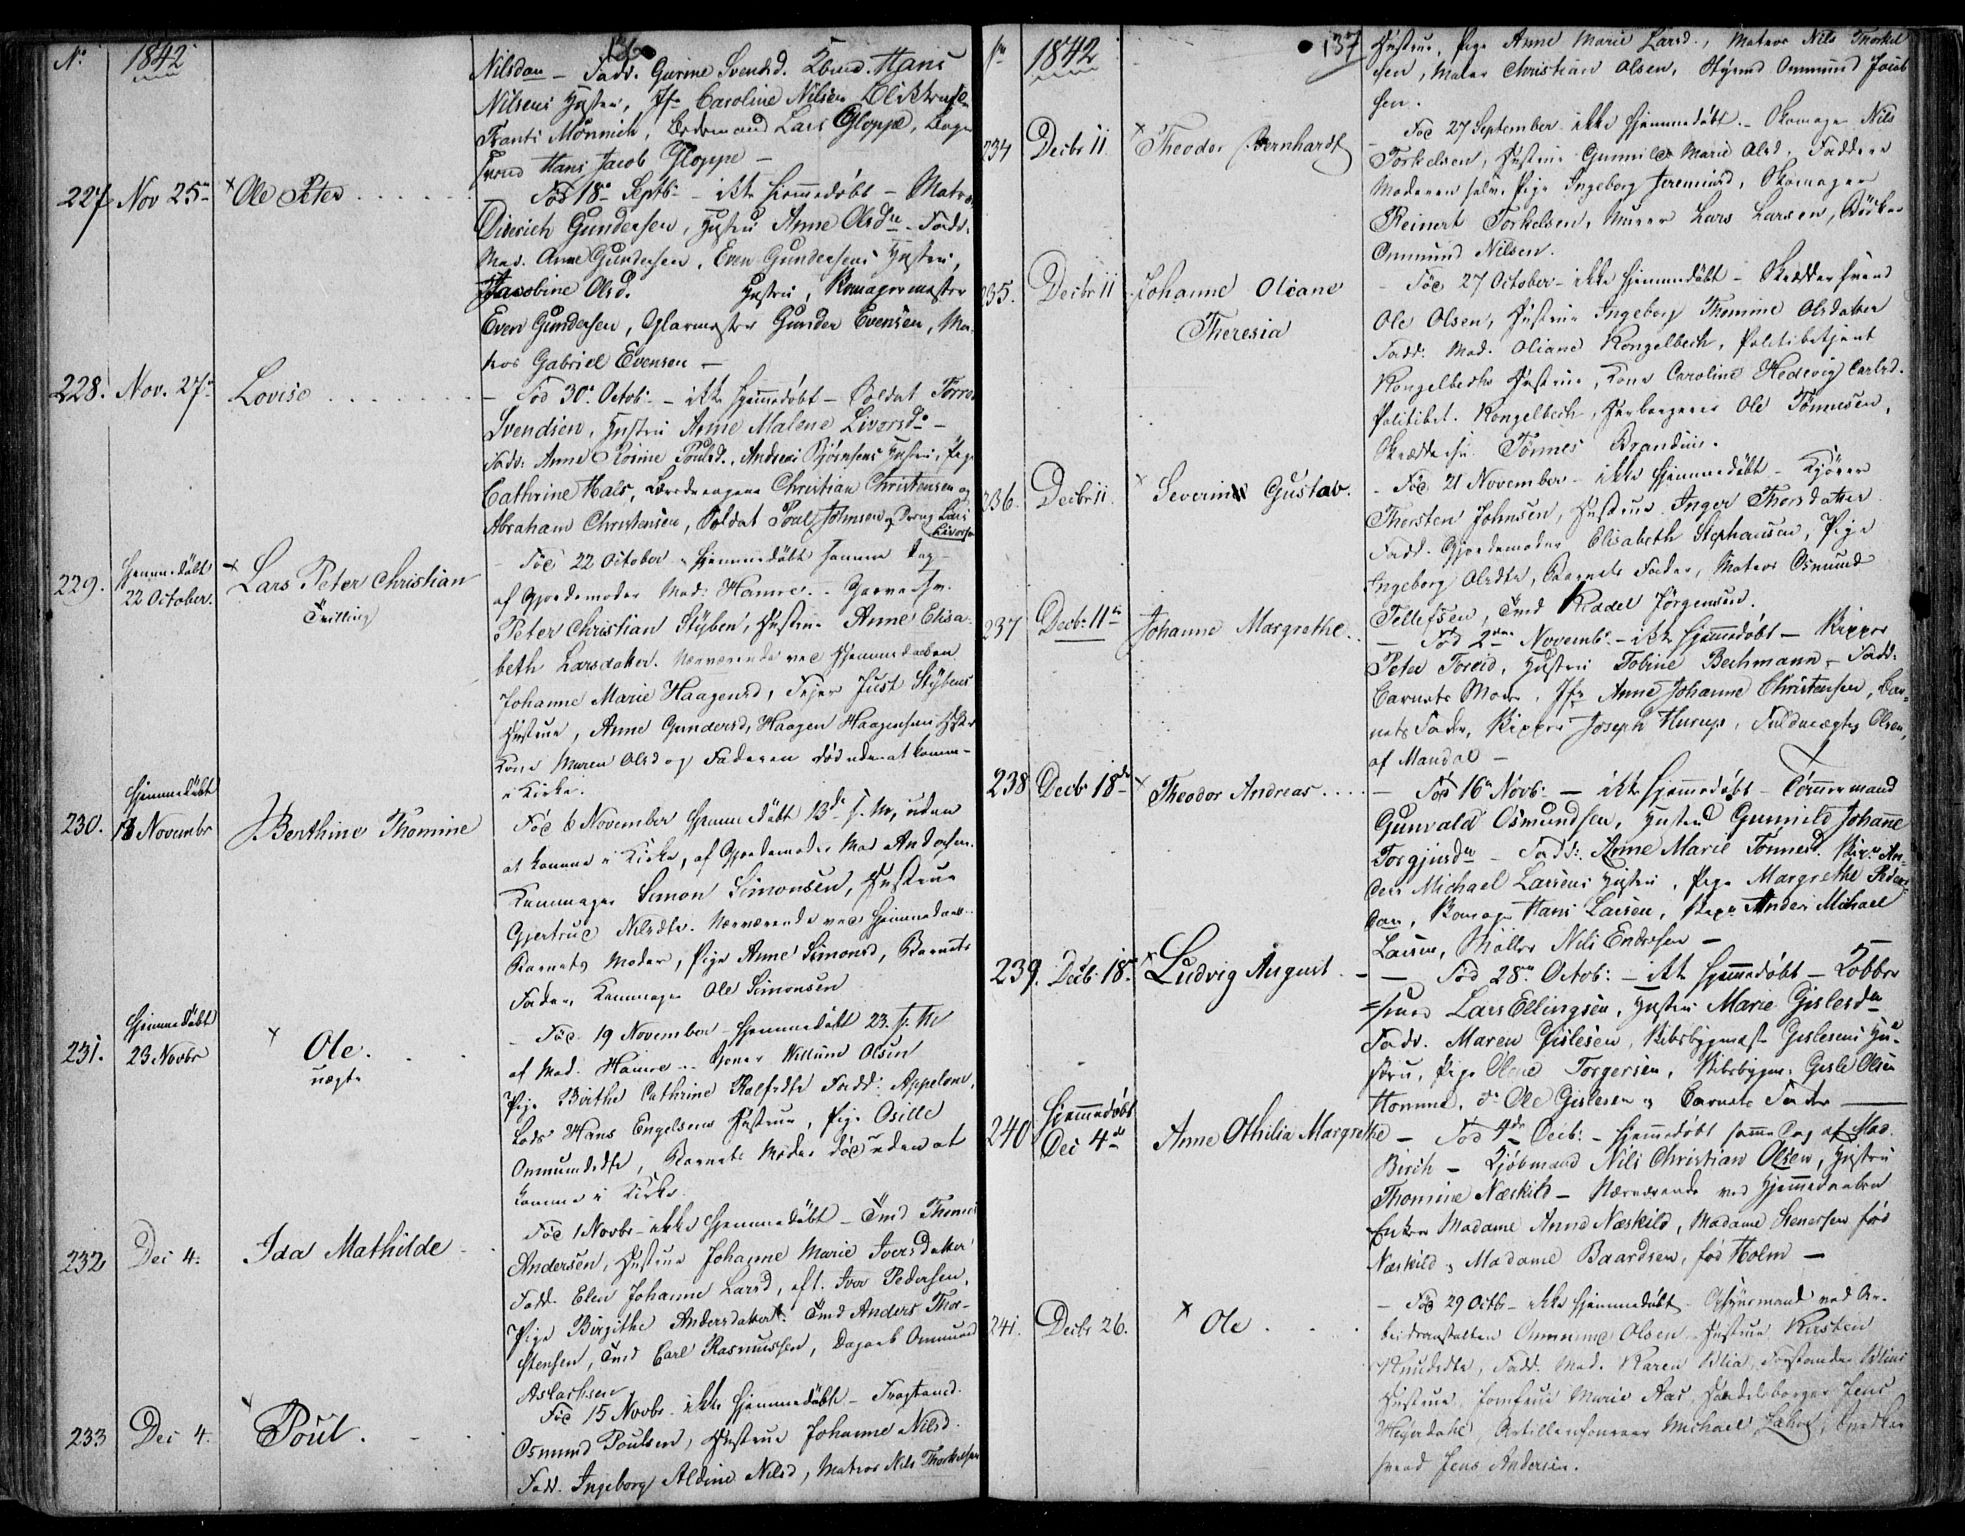 No 1842 136
Nilsdan – Fadd. Gurine Svendsd. Hans
Nilsens Hustru, Jfr Caroline Nilsen
Frants Mönnich, Lars Gloppe,
svend Hans Jacob Gloppe –
227 Nov 25 × Ole Peter . . . . Fød 18 Septb. – ikke hjemmedøbt – Matros
Diderich Gundersen, Hustru Anne Olsdn – Fadd.
Mad. Anne Gundersen, Even Gundersens Hustru,
Jacobine Olsd. Hustru, Skomagermester
Even Gundersen, Glarmester Gunder Evensen, Ma-
tros Gabriel Evensen –
228. Nov. 27 Lovise . . . . . – Fød 30 Octob. – ikke hjemmedøbt – Soldat
Svendsen, Hustru Anne Malene Livorsdn –
Fadd. Anne Rosine Poulsd., Andreas Björnsens Hustru, Pige
Cathrine Hals, Christian Christensen og
Abraham Christensen, Soldat Poul Johnsen, Dreng Lars
Livorsen
229. Hjemmedøbt 22 October. × Lars Peter Christian Tvilling – Fød 22 October – hjemmedøbt samme Dag –
af Gjordemoder Mad. Hamre. – Garversv.
Peter Christian Stÿben, Hustru Anne Elisa-
beth Larsdatter. Nærværende ved Hjemmedaaben
Johanne Marie Haagensd, Fejer Just Stÿbens
Hustrue, Anne Gundersd, Haagen Haagensens Hustr
Kone Maren Olsd og Faderen død uden at komme
i Kirke.
230. Hjemmedøbt 13 Novembr Berthine Thomine Fød 6 November hjemmedøbt 13de s. M, uden
at komme i Kirke, af Gjordemoder Mad
Kammager Simon Simonsen, Hustrue
Gjertrud Nilsdtr. Nærværende ved Hjemmedaab.
Barnets Moder, Pige Anne Simonsd, Barnets
Fader, Kammager Ole Simonsen
231. Hjemmedøbt 23 Novbr × Ole. uægte – Fød 19 November – hjemmedøbt 23. s. M
af Mad. Hamre – Willum Olsen
Pige Birthe Cathrine Fadd:
Lods Hans Engelsens Hustrue, Pige Osille
Ommundsdtr, Barnets Moder død uden at
komme i Kirke
232 Dec 4. Ida Mathilde Fød 1 Novbr – ikke hjemmedøbt – Tmd
Andersen, Hustrue Johanne Marie Iversdatter
Fadd. Elen Johanne Larsd, Ivar Pedersen,
Pige Birgithe Andersdatter. Tmd Anders Thor-
stensen, Tmd Carl Rasmussen, Dagarb Ommund
Aslachsen
233 Dec 4. × Poul. Fød 15 Novbr. ikke hjemmedøbt –
Osmund Poulsen, Hustrue Johanne Nilsd.
Fadd. Ingeborg Aldine Nilsd, Matros Nils Thorkelsen
1842 137
Hustrue, Pige Anne Marie Larsd., Matros Nils Thorkel
sen, Maler Christian Olsen, Stÿrmd Ommund Jacob
sen.
234 Decbr 11. × Theodor Bernhardt – Fød 27 September ikke hjemmedøbt – Skomager Nils
Torkelsen, Hustrue Gunnild Marie Olsd, Faddere
Moderen selv, Pige Ingeborg Jeremiasd, Skomager
Reinert Torkelsen, Murer Lars Larsen, Bödker
Ommund Nilsen.
235. Decbr 11 Johanne Oliane Theresia – Fød 27 October – ikke hjemmedøbt – Skreddersvend
Ole Olsen, Hustrue Ingeborg Thomine Olsdatter
Fadd. Mad. Oliane Kongelbech, Politibetjent
Kongelbechs Hustrue, Kone Caroline Hedevig Carlsd.
Politibet. Kongelbech, Ole Tönnesen,
Skreddersv. Tönnes
236. Decbr 11. × Severin Gustav. – Fød 21 November – ikke hjemmedøbt –
Thorsten Johnsen, Hustrue Inger Thorsdatter.
Fadd. Gjordemoder Elisabeth Stephansen, Pige
Ingeborg Olsdtr, Barnets Fader, Matros Osmund
Tellefsen, Tmd Jörgensen.
237 Decb. 11 Johanne Margrethe – Fød 2 Novemb. – ikke hjemmedøbt – Skipper
Peter Foreid, Hustru Tobine Bechmann – Fadd:
Barnets Moder, Jfr Anne Johanne Christensen, Bar-
nets Fader, Skipper Joseph Hurup, Olsen,
af Mandal –
238 Decb 18de × Theodor Andreas . . . . – Fød 16 Novb. – ikke hjemmedøbt – Tömmermand
Gunvald Osmundsen, Hustru Gunnild Johanne
Torgjusdn – Fadd: Anne Marie Tönnesd. An-
ders Michael Larsens Hustru, Pige Margrethe Peders-
dan, Skomag. Hans Larsen, Anders Michael
Larsen, Möller Nils Endresen –
239. Decb. 18. × Ludvig August – – Fød 28 Octob: – ikke hjemmedøbt – Kobber
svend Lars Ellingsen, Hustru Marie Gislesdn
Fadd. Maren Gislesen, Skibsbygmest Gislesens Hu-
stru, Pige Olene Torgersen, Skibsbygm: Gisle Olsen
Homme, do Ole Gislesen og Barnets Fader –
240 Hjemmedøbt Dec 4de Anne Othilia Margrethe – Fød 4de Decb. – hjemmedøbt samme Dag af Mad.
Birch – Kjöbmand Nils Christian Olsen, Hustru
Thomine Næskild – Nærværende ved Hjemmedaaben
Enken Madame Anne Næskild, Madame Stenersen fød
Næskild, Madame Baardsen, fød Holm –
241. Decbr 26. × Ole . . . – Fød 29 Octbr – ikke hjemmedøbt. Opsÿnsmand ved Ar-
beidsanstalten Ommund Olsen – Hustrue Kirsten
Knudsdtr, Fadd. Mad. Karen
Hustrue, Jomfrue Marie Aas, Handelsborger Jens
Heÿerdahl, Michael Snedker
svend Jens Andersen.